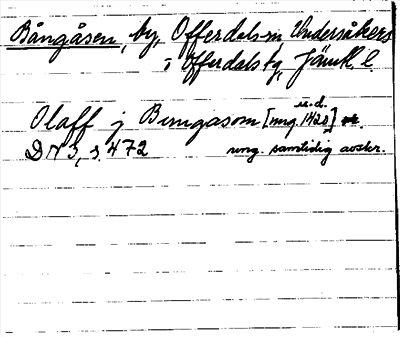 Bångåsen, by, Offerdals sn Undersåkers
i Offerdals tg, Jämtl. l.
u.d.
Olaff j Bungasom [omg. 1420]
DN 3, s. 472 ung. samtidig avskr.